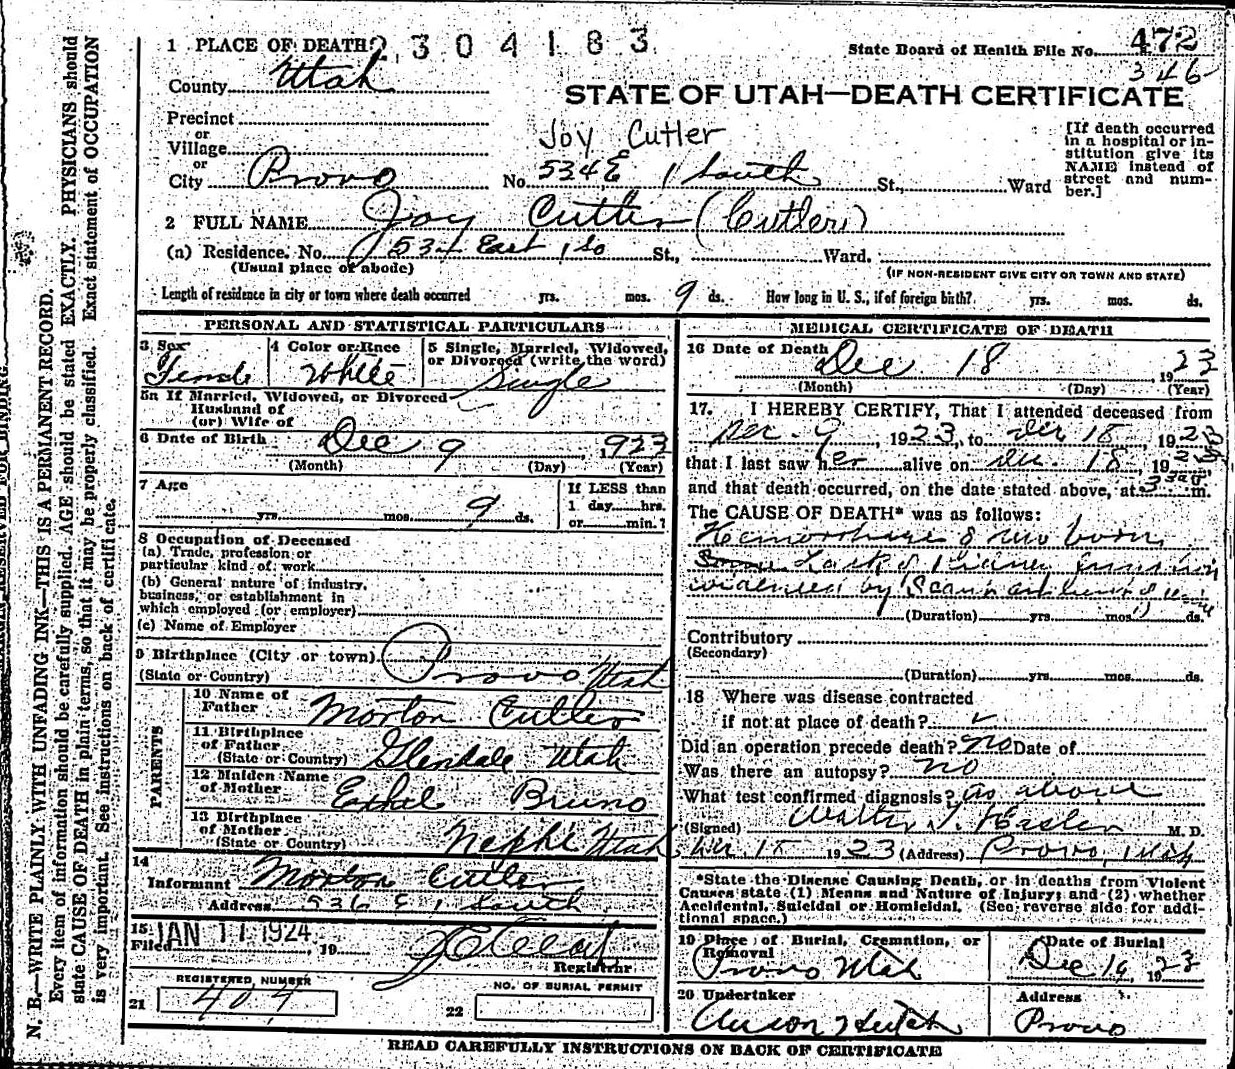 1 PLACE OF DEATH
2304183
State Board of Health File No. 472
346
County Utah
STATE OF UTAH—DEATH CERTIFICATE
Precinct
or
Village
or
City Provo
Joy Cutler
No. 534 E 1 South St., Ward
[If death occurred in a hospital or institution give its NAME instead of street and number.]
2 FULL NAME Joy Cutler (Cutler)
(a) Residence. No. 534 East 1 So St., Ward.
(Usual place of abode)
(IF NON-RESIDENT GIVE CITY OR TOWN AND STATE)
Length of residence in city or town where death occurred yrs. mos. 9 ds. How long in U. S., if of foreign birth? yrs. mos. ds.
PERSONAL AND STATISTICAL PARTICULARS
3 Sex Female
4 Color or Race White
5 Single, Married, Widowed, or Divorced (write the word) Single
5a If Married, Widowed, or Divorced
Husband of
(or) Wife of
6 Date of Birth Dec 9, 1923
(Month) (Day) (Year)
7 Age yrs. mos. 9 ds.
If LESS than
1 day hrs.
or min.?
8 Occupation of Deceased
(a) Trade, profession or
particular kind of work
(b) General nature of industry,
business, or establishment in
which employed (or employer)
(c) Name of Employer
9 Birthplace (City or town)
(State or Country) Provo Utah
PARENTS
10 Name of Father Morton Cutler
11 Birthplace of Father (State or Country) Glendale Utah
12 Maiden Name of Mother Ethel Bruno
13 Birthplace of Mother (State or Country) Nephi Utah
14
Informant Morton Cutler
Address 536 E 1 South
15
Filed JAN 11 1924, 19
Registrar
REGISTERED NUMBER
21 404
NO. OF BURIAL PERMIT
22
MEDICAL CERTIFICATE OF DEATH
16 Date of Death Dec 18 1923
(Month) (Day) (Year)
17. I HEREBY CERTIFY, That I attended deceased from
Dec. 9, 1923, to Dec 18, 1923
that I last saw her alive on Dec. 18, 1923
and that death occurred, on the date stated above, at 3 m.
The CAUSE OF DEATH* was as follows:
Hemorrhage of new born
Lack of Kidney function
evidenced by
(Duration) yrs. mos. ds.
Contributory
(Secondary)
(Duration) yrs. mos. ds.
18 Where was disease contracted
if not at place of death?
Did an operation precede death? no Date of
Was there an autopsy? no
What test confirmed diagnosis? as above
(Signed) Walter T. Hasler M. D.
Dec. 18 1923 (Address) Provo, Utah
*State the Disease Causing Death, or in deaths from Violent
Causes state (1) Means and Nature of Injury; and (2) whether
Accidental, Suicidal or Homicidal. (See reverse side for additional space.)
19 Place of Burial, Cremation, or Removal Provo Utah
Date of Burial Dec 19, 1923
20 Undertaker
Address Provo
READ CAREFULLY INSTRUCTIONS ON BACK OF CERTIFICATE
MARGIN RESERVED FOR BINDING.
N. B.—WRITE PLAINLY WITH UNFADING INK—THIS IS A PERMANENT RECORD.
Every item of information should be carefully supplied. AGE should be stated EXACTLY. PHYSICIANS should
state CAUSE OF DEATH in plain terms, so that it may be properly classified. Exact statement of OCCUPATION
is very important. See instructions on back of certificate.